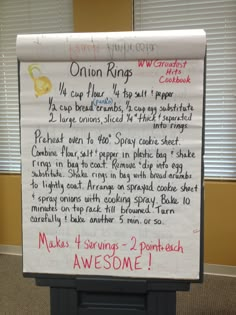 Onion Rings
WW Greatest
Hits
Cookbook
1/4 cup flour, 1/4 tsp salt + pepper
1/2 cup bread crumbs, 1/2 cup egg substitute
(panko)
2 large onions, sliced 1/4" thick + separated
into rings
Preheat oven to 400° Spray cookie sheet.
Combine flour, salt + pepper in plastic bag + shake
rings in bag to coat. Remove + dip into egg
substitute. Shake rings in bag with bread crumbs
to lightly coat. Arrange on sprayed cookie sheet
+ spray onions with cooking spray. Bake 10
minutes on top rack till browned. Turn
carefully + bake another 5 min. or so.
Makes 4 servings - 2 points each
AWESOME!